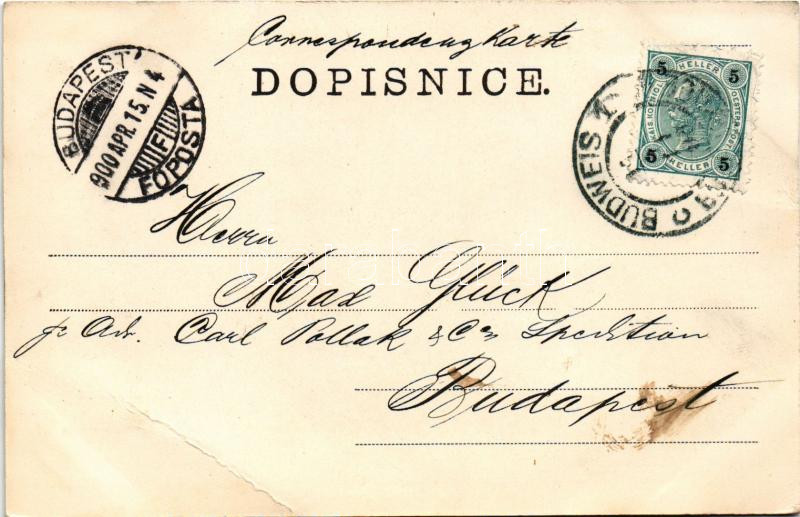 Correspondenz Karte
DOPISNICE.
BUDAPEST
900 APR. 15. N 4
FŐPOSTA
5 HELLER 5
KAIS. KOENIGL. OESTERR. POST
5 HELLER 5
BUDWEIS 1
Herrn
Max Glück
p. Adr. Carl Pollak & Co Spedition
Budapest